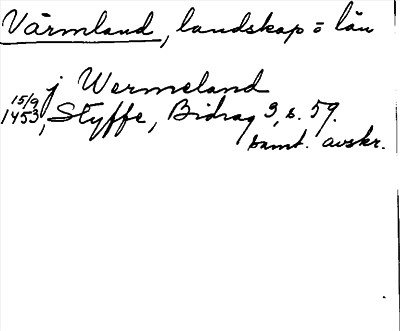 Värmland, landskap o län
j Wermeland
15/9 1453, Styffe, Bidrag 3, s. 59.
samt. avskr.